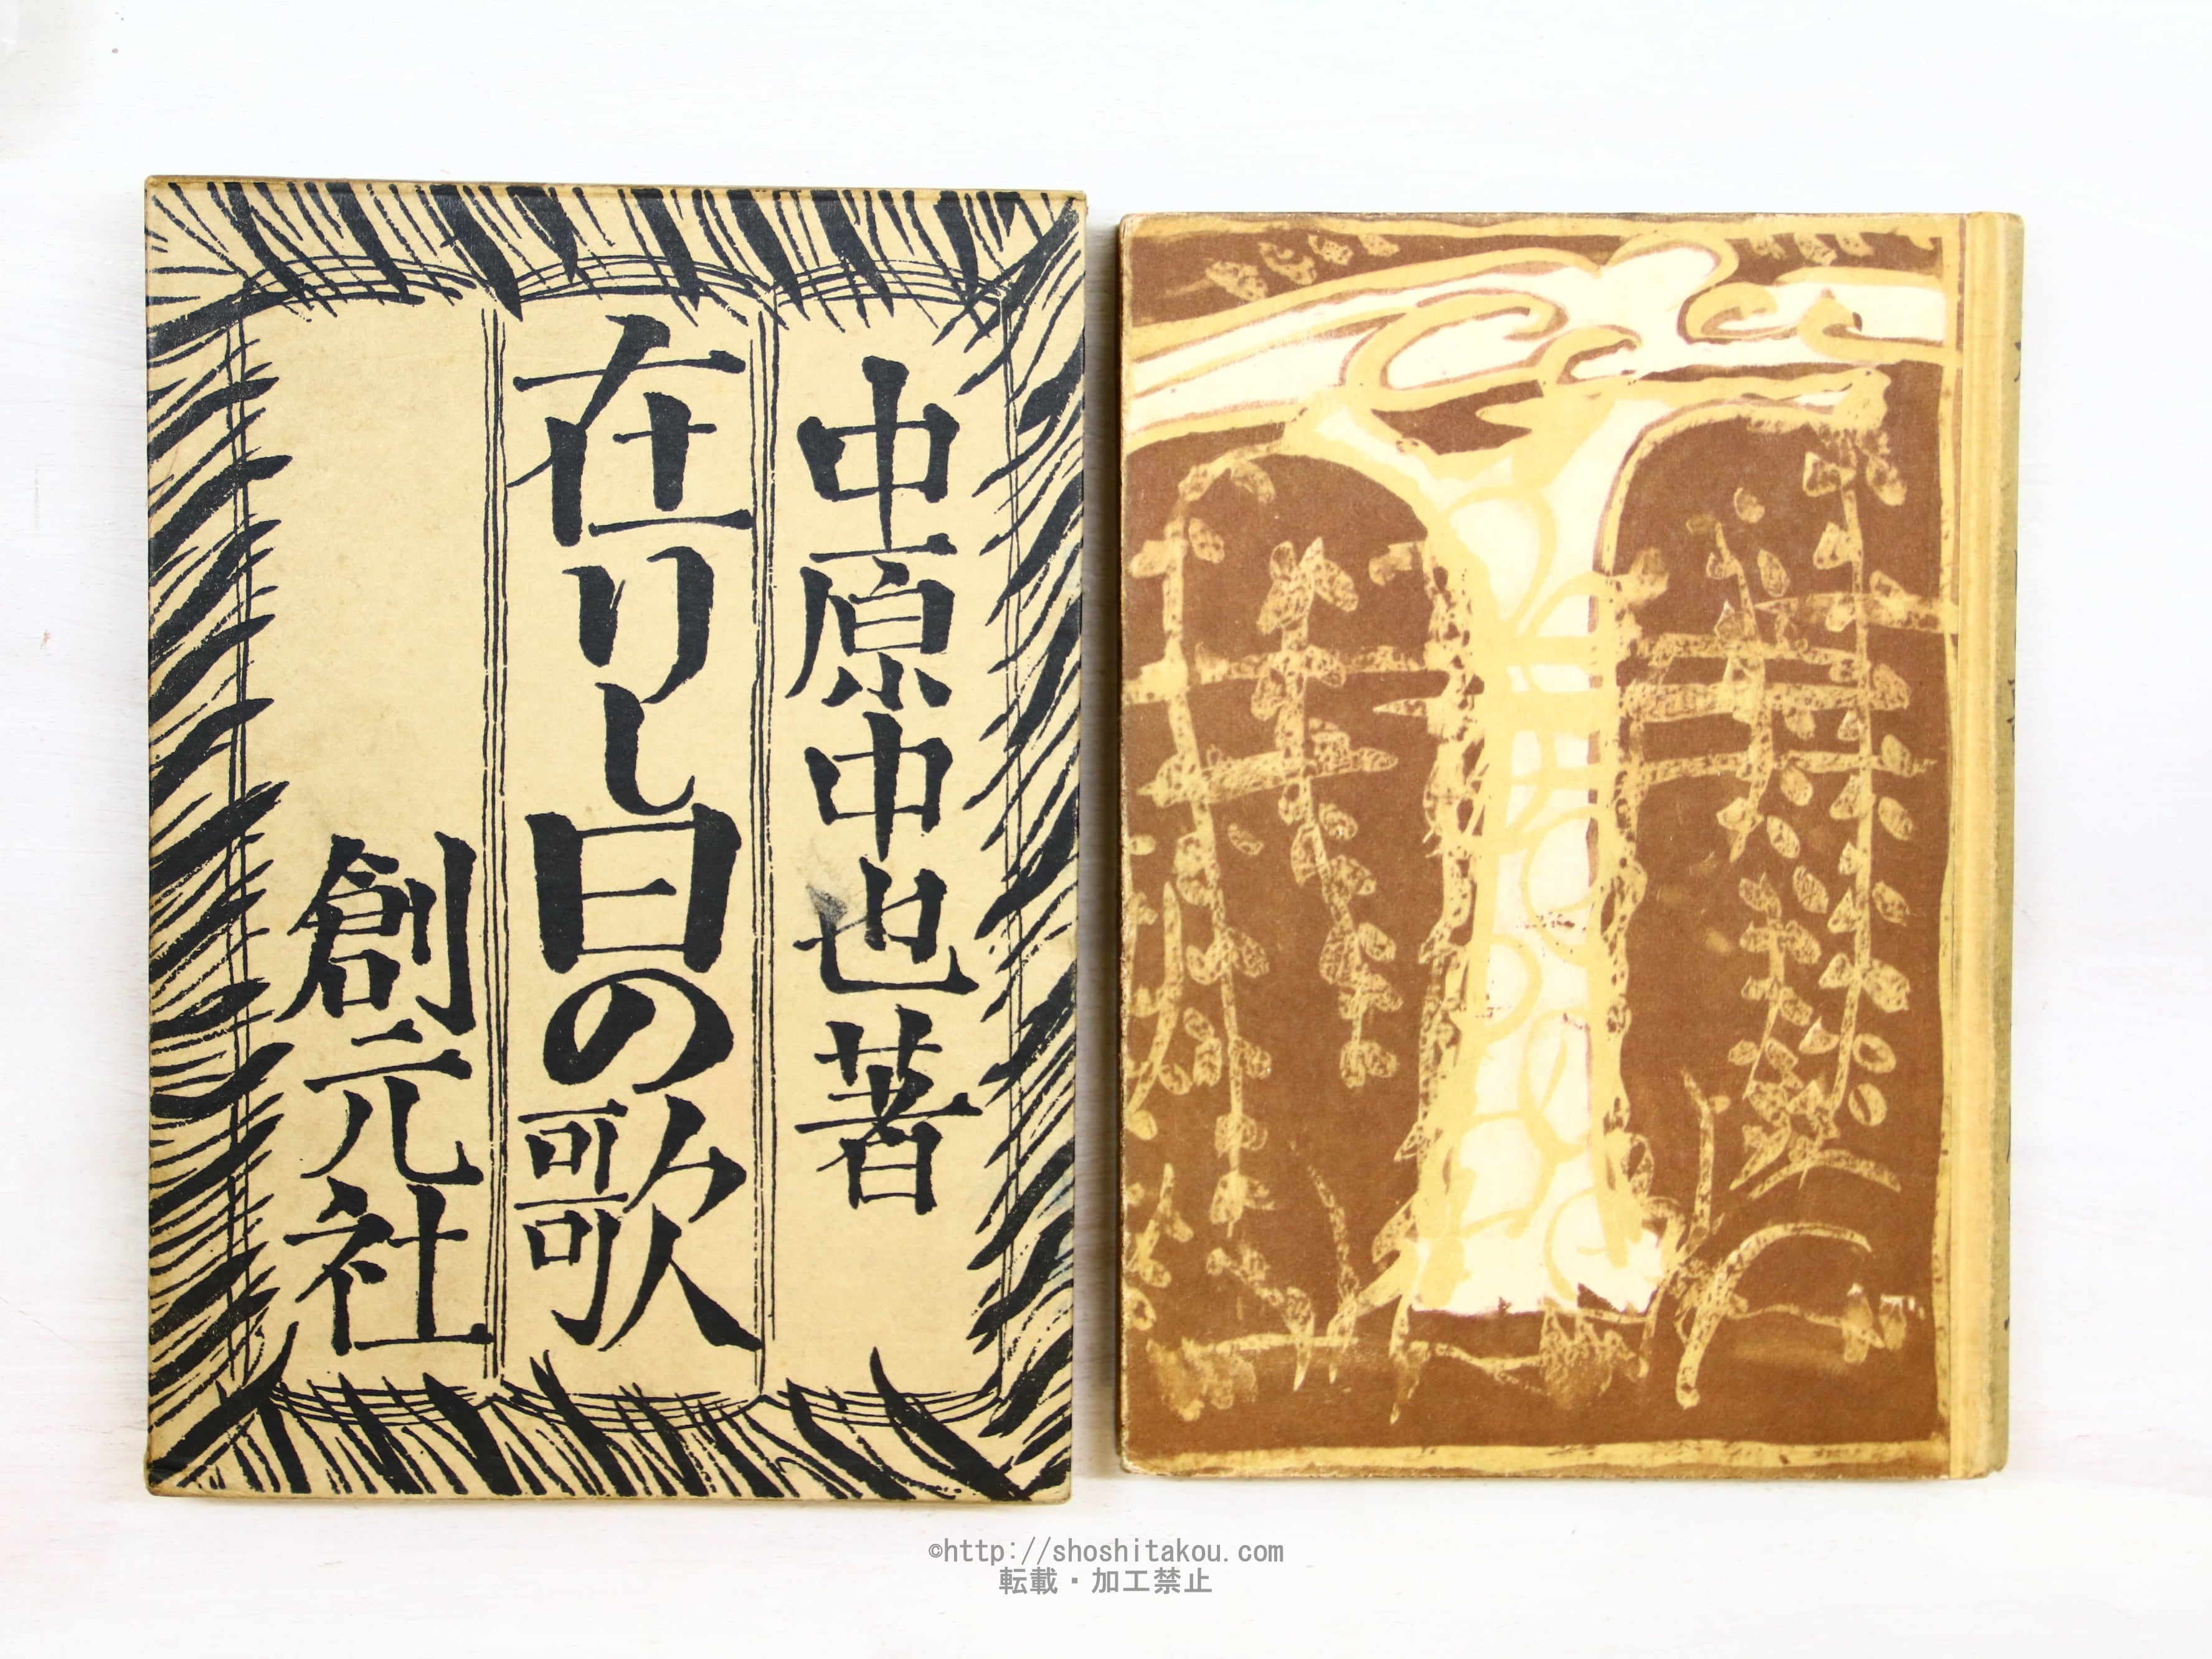 中原中也著
在りし日の歌
創元社
©http://shoshitakou.com
転載・加工禁止